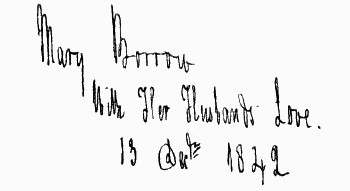 Mary Borrow
With Her Husbands Love.
13 1842